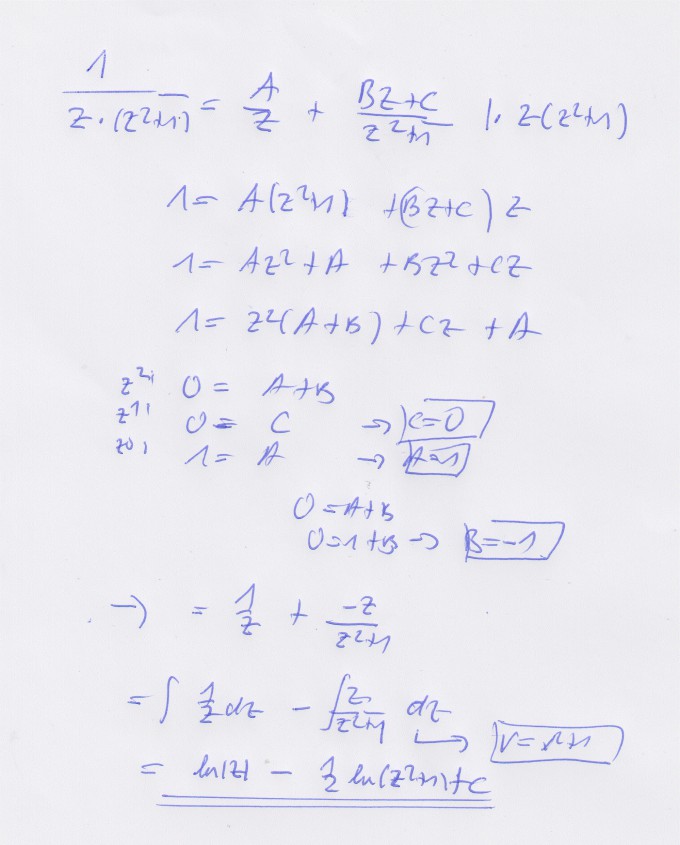 1/(z·(z²+1)) = A/z + (Bz+C)/(z²+1) |· z(z²+1)
1 = A(z²+1) + (Bz+C) z
1 = Az² + A + Bz² + Cz
1 = z²(A+B) + Cz + A
z²: 0 = A+B
z¹: 0 = C → C=0
z⁰: 1 = A → A=1
0 = A+B
0 = 1+B → B=-1
→ = 1/z + -z/(z²+1)
= ∫ 1/z dz - ∫ z/(z²+1) dz
= ln|z| - 1/2 ln(z²+1) + C